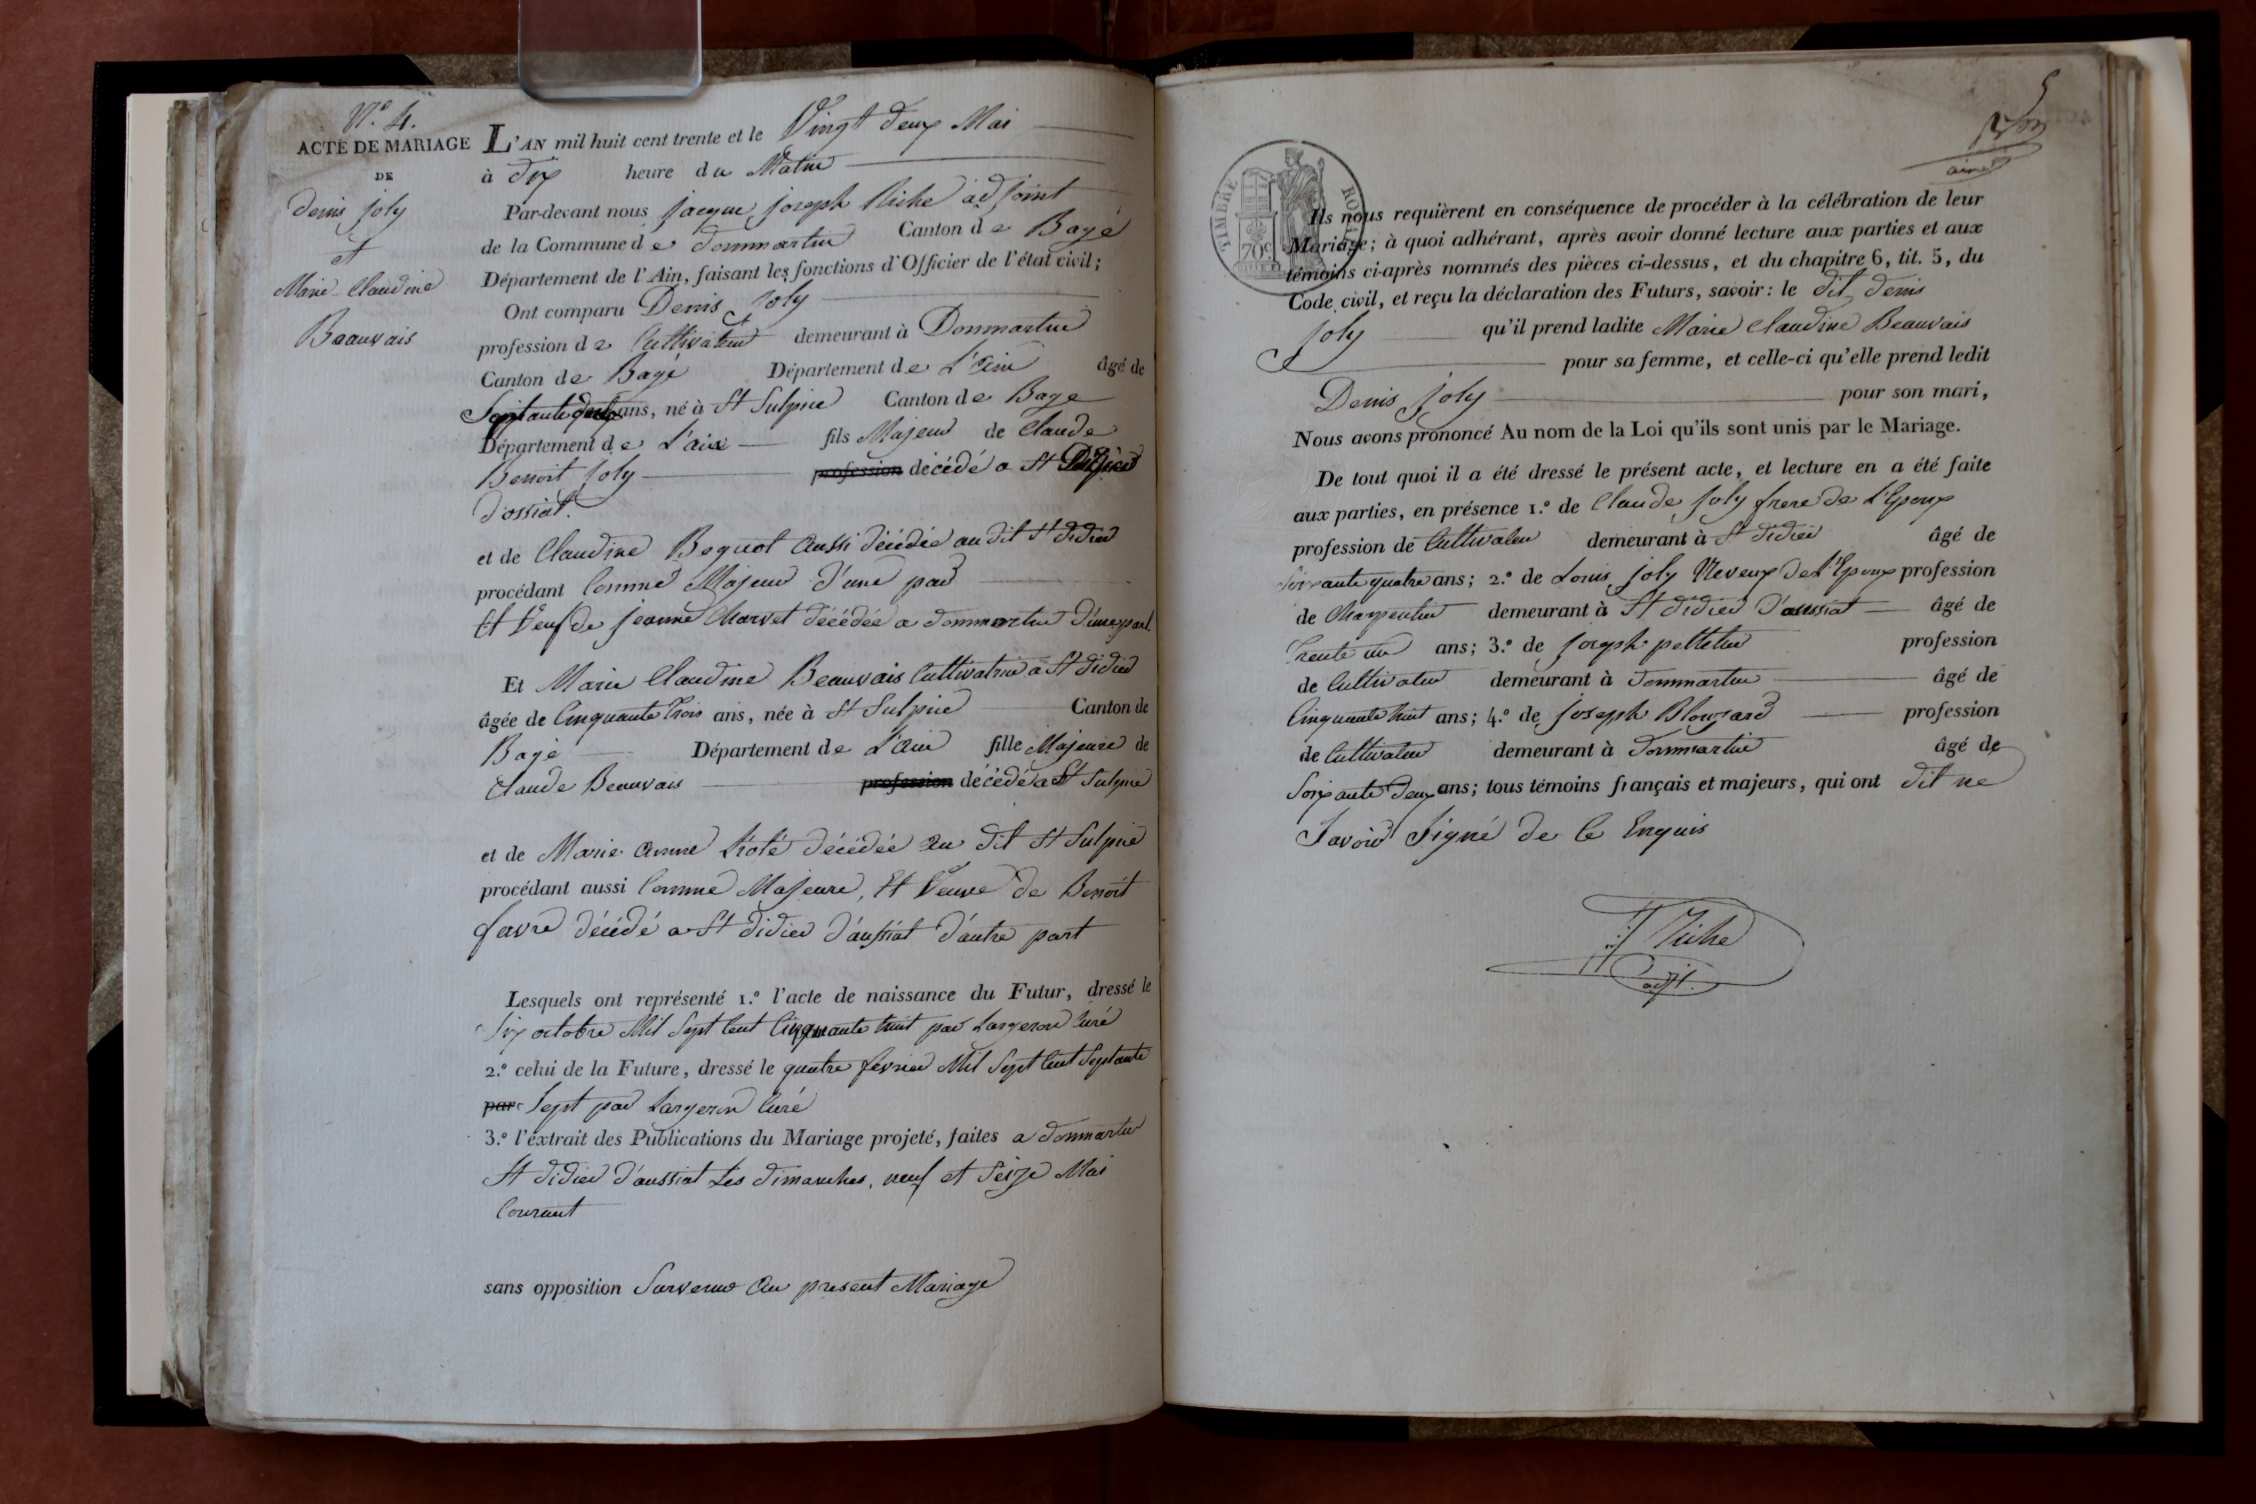 N.o 4.
ACTE DE MARIAGE
DE
Denis Joly
et
Marie Claudine
Beauvais
L'AN mil huit cent trente et le Vingt deux Mai
à dix heure du Matin
Par-devant nous Jacque Joseph Riche adjoint
de la Commune de Dommartin Canton de Bagé
Département de l'Ain, faisant les fonctions d'Officier de l'état civil;
Ont comparu Denis Joly
profession de Cultivateur demeurant à Dommartin
Canton de Bagé Département de L'ain âgé de
Septante ans, né à St Sulpice Canton de Bage
Département de L'ain fils Majeur de Claude
Benoit Joly profession décédé a St Didier
d'ossiat.
et de Claudine Boguot aussi décédée au dit St didier
procédant Comme Majeur d'une part
Et Veuf de Jeanne Charvet décédée a dommartin d'une part.
Et Marie Claudine Beauvais Cultivatrice a St didier
âgée de Cinquante trois ans, née à St Sulpice Canton de
Bagé Département de L'ain fille Majeure de
Claude Beauvais profession décédé a St Sulpice
et de Marie anne décédée au dit St Sulpice
procédant aussi Comme Majeure, Et Veuve de Benoit
favre décédé a St didier d'aussiat d'autre part
Lesquels ont représenté 1.o l'acte de naissance du Futur, dressé le
Six octobre Mil Sept Cent Cinquante huit par Largeron Curé
2.o celui de la Future, dressé le quatre fevrier Mil Sept Cent Septante
par Sept par Largeron Curé
3.o l'extrait des Publications du Mariage projeté, faites a Dommartin
St didier d'aussiat Les dimanches, neuf et Seize Mai
Courant
sans opposition Survenue au present Mariage
5
ainé
TIMBRE ROYAL
70c
Ils nous requièrent en conséquence de procéder à la célébration de leur
Mariage; à quoi adhérant, après avoir donné lecture aux parties et aux
témoins ci-après nommés des pièces ci-dessus, et du chapitre 6, tit. 5, du
Code civil, et reçu la déclaration des Futurs, savoir: le dit Denis
Joly qu'il prend ladite Marie Claudine Beauvais
pour sa femme, et celle-ci qu'elle prend ledit
Denis Joly pour son mari,
Nous avons prononcé Au nom de la Loi qu'ils sont unis par le Mariage.
De tout quoi il a été dressé le présent acte, et lecture en a été faite
aux parties, en présence 1.o de Claude Joly frere de L'Epoux
profession de Cultivateur demeurant à St didier âgé de
Soixante quatre ans; 2.o de Louis Joly Neveux de L'Epoux profession
de Charpentier demeurant à St didier d'aussiat âgé de
Trente un ans; 3.o de Joseph pelletin profession
de Cultivateur demeurant à Dommartin âgé de
Cinquante huit ans; 4.o de Joseph Blouzard profession
de Cultivateur demeurant à Dommartin âgé de
Soixante deux ans; tous témoins français et majeurs, qui ont dit ne
Savoir Signé de Ce Enquis
Riche
adjt.